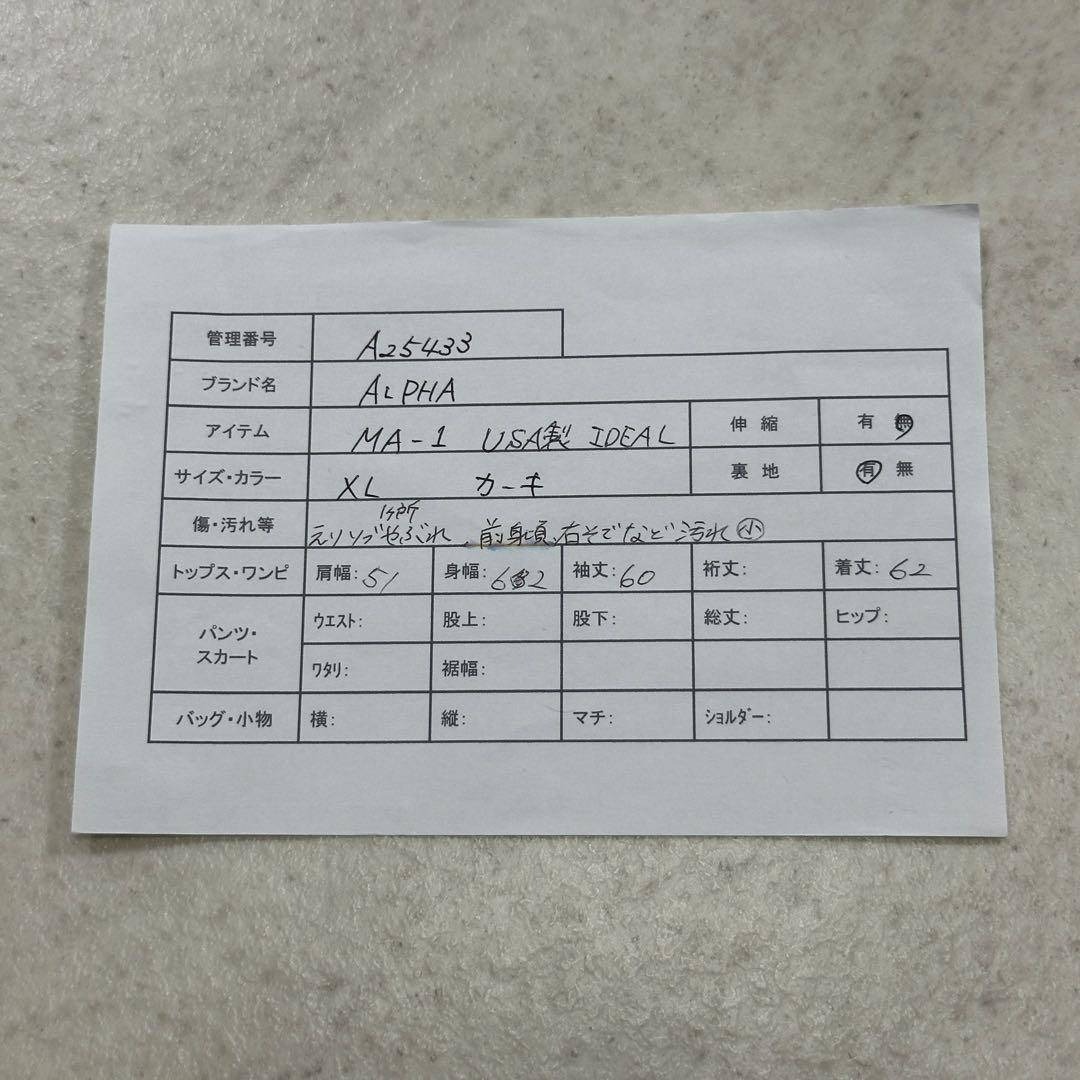 管理番号 A25433
ブランド名 ALPHA
アイテム MA-1 USA製 IDEAL 伸縮 有 無
サイズ・カラー XL カーキ 裏地 有 無
1ヶ所
傷・汚れ等 えりリブやぶれ、前身頃、右そでなど汚れ小
トップス・ワンピ 肩幅: 51 身幅: 62 袖丈: 60 裄丈: 着丈: 62
パンツ・スカート ウエスト: 股上: 股下: 総丈: ヒップ:
ワタリ: 裾幅:
バッグ・小物 横: 縦: マチ: ショルダー: